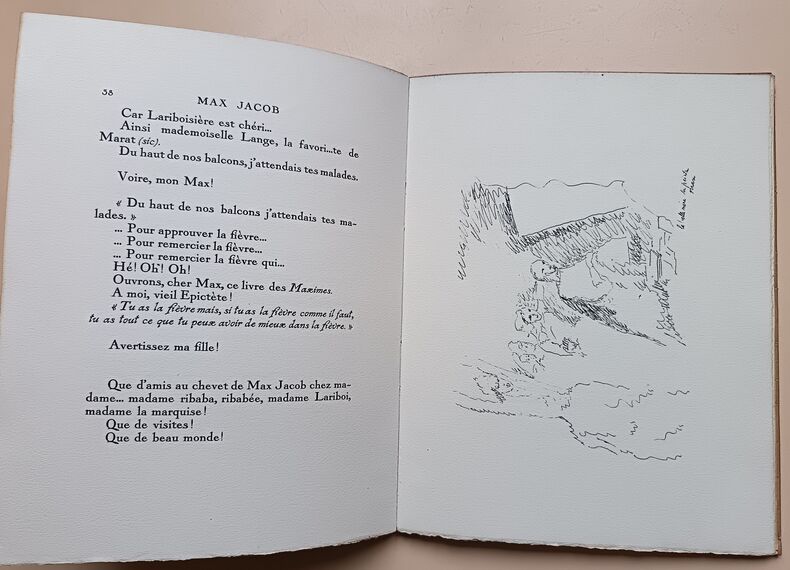 38
MAX JACOB
Car Lariboisière est chéri...
Ainsi mademoiselle Lange, la favori...te de
Marat (sic).
Du haut de nos balcons, j'attendais tes malades.
Voire, mon Max!
« Du haut de nos balcons j'attendais tes ma-
lades. »
... Pour approuver la fièvre...
... Pour remercier la fièvre...
... Pour remercier la fièvre qui...
Hé! Oh! Oh!
Ouvrons, cher Max, ce livre des Maximes.
A moi, vieil Epictète!
« Tu as la fièvre mais, si tu as la fièvre comme il faut,
tu as tout ce que tu peux avoir de mieux dans la fièvre. »
Avertissez ma fille!
Que d'amis au chevet de Max Jacob chez ma-
dame... madame ribaba, ribabée, madame Lariboi,
madame la marquise!
Que de visites!
Que de beau monde!